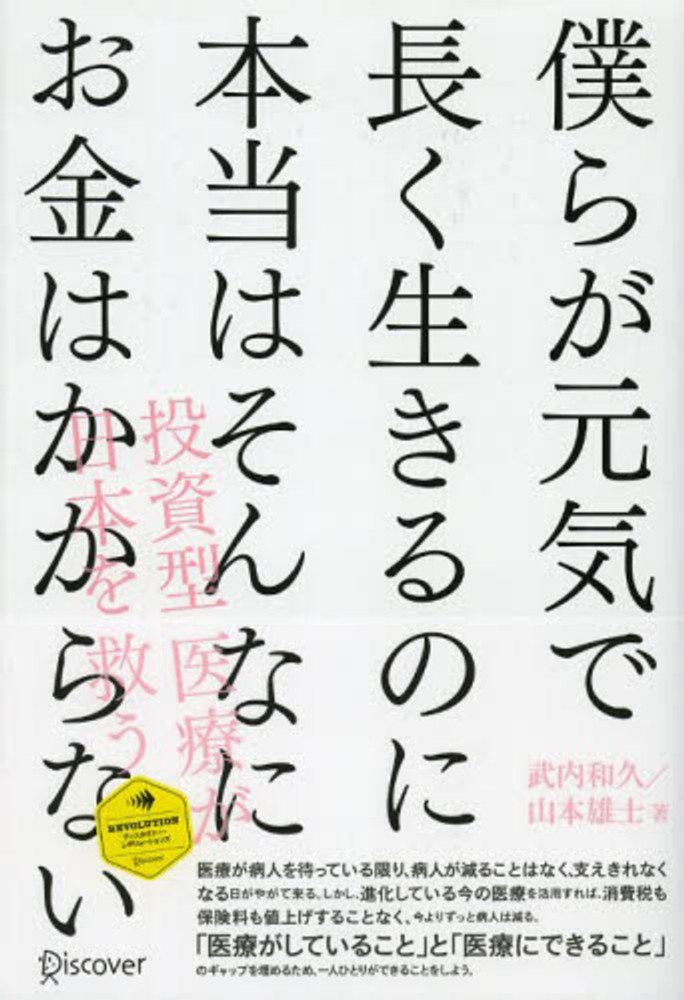 僕らが元気で
長く生きるのに
本当はそんなに
お金はかからない
投資型 医療が
日本を 救う
武内和久／
山本雄士 著
REVOLUTION
ディスカヴァー・
レボリューションズ
Discover
医療が病人を待っている限り、病人が減ることはなく、支えきれなく
なる日がやがて来る。しかし、進化している今の医療を活用すれば、消費税も
保険料も値上げすることなく、今よりずっと病人は減る。
「医療がしていること」と「医療にできること」
のギャップを埋めるため、一人ひとりができることをしよう。
Discover